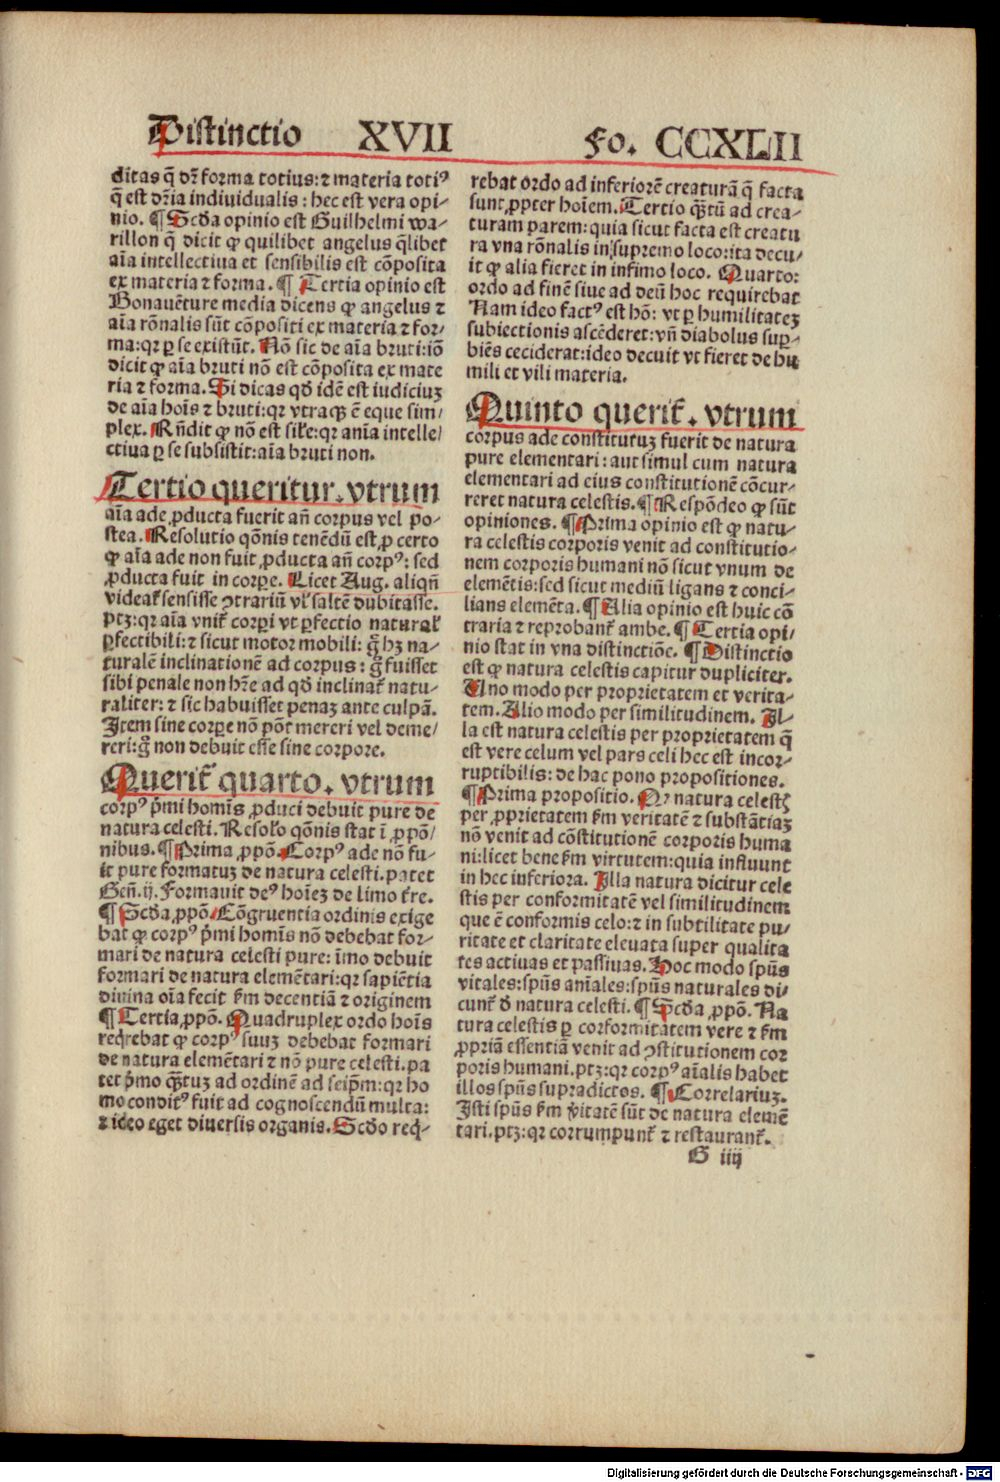 Distinctio XVII Fo. CCXLII
ditas q̄ dr̄ forma totius: ⁊ materia totiꝰ
q̄ est dr̄ia indiuidualis : hec est vera opi-
nio. ¶ Scd̄a opinio est Guilhelmi wa-
rillon q̄ dicit ꝙ quilibet angelus q̄libet
aīa intellectiua et sensibilis est cōposita
ex materia ⁊ forma. ¶ Tertia opinio est
Bonauēture media dicens ꝙ angelus ⁊
aīa rōnalis sūt cōpositi ex materia ⁊ for-
ma: qꝛ ꝑ se existūt. Nō sic de aīa bruti: iō
dicit ꝙ aīa bruti nō est cōposita ex mate
ria ⁊ forma. Si dicas qd̄ idē est iudiciuꝫ
de aīa hoīs ⁊ bruti: qꝛ vtraqꝫ ē eque sim-
plex. Rn̄dit ꝙ nō est sil̄e: qꝛ anīa intelle-
ctiua ꝑ se subsistit: aīa bruti non.
Tertio queritur. vtrum
aīa ade ꝓducta fuerit an̄ corpus vel po-
stea. Resolutio qōnis tenēdū est, ꝓ certo
ꝙ aīa ade non fuit ꝓducta an̄ corpꝰ: sed
ꝓducta fuit in corꝑe. Licet Aug. aliqn̄
videat᷑ sensisse ꝯtrariū vl̓ saltē dubitasse.
ptꝫ: qꝛ aīa vnit᷑ corpi vt ꝑfectio natural̓
ꝑfectibili: ⁊ sicut motor mobili: g̊ hꝫ na-
turalē inclinationē ad corpus : g̊ fuisset
sibi penale non hr̄e ad qd̄ inclinat᷑ natu-
raliter: ⁊ sic habuisset penaꝫ ante culpā.
Item sine corꝑe nō pōt mereri vel deme-
reri: g̊ non debuit esse sine corpore.
Querit᷑ quarto. vtrum
corpꝰ p̄mi homīs ꝓduci debuit pure de
natura celesti. Resol̓o qōnis stat ī ꝓpō-
nibus. ¶ Prima ꝓpō. Corpꝰ ade nō fu-
it pure formatuꝫ de natura celesti. patet
Gen̄. ij. Formauit deꝰ hoīeꝫ de limo t̄re.
¶ Scd̄a ꝓpō. Cōgruentia ordinis exige
bat ꝙ corpꝰ p̄mi homīs nō debebat for-
mari de natura celesti pure: īmo debuit
formari de natura elemētari: qꝛ sapiētia
diuina oīa fecit s̄m decentiā ⁊ originem
¶ Tertia ꝓpō. Quadruplex ordo hoīs
req̄rebat ꝙ corpꝰ suuꝫ debebat formari
de natura elemētari ⁊ nō pure celesti. pa
tet p̄mo qꝫtuꝫ ad ordinē ad seip̄m: qꝛ ho
mo conditꝰ fuit ad cognoscendū multa:
⁊ ideo eget diuersis organis. Scd̄o req̄-
rebat ordo ad inferiorē creaturā q̄ facta
sunt ꝓpter hoīem. Tertio qꝫtū ad crea-
turam parem: quia sicut facta est creatu
ra vna rōnalis in supremo loco: ita decu-
it ꝙ alia fieret in infimo loco. Quarto:
ordo ad finē siue ad deū hoc requirebat
Nam ideo factꝰ est hō: vt ꝑ humilitateꝫ
subiectionis ascēderet: vn̄ diabolus suꝑ-
biēs ceciderat: ideo decuit vt fieret de hu
mili et vili materia.
Quinto querit᷑. vtrum
corpus ade constitutuꝫ fuerit de natura
pure elementari : aut simul cum natura
elementari ad eius constitutionē cōcur-
reret natura celestis. ¶ Respōdeo ꝙ sūt
opiniones. ¶ Prima opinio est ꝙ natu-
ra celestis corporis venit ad constitutio-
nem corporis humani nō sicut vnum de
elemētis: sed sicut mediū ligans ⁊ conci-
lians elemēta. ¶ Alia opinio est huic cō
traria ⁊ reprobant᷑ ambe. ¶ Tertia opi-
nio stat in vna distinctiōe. ¶ Distinctio
est ꝙ natura celestis capitur dupliciter.
Uno modo per proprietatem et verita-
tem. Alio modo per similitudinem. Il-
la est natura celestis per proprietatem q̄
est vere celum vel pars celi hec est incor-
ruptibilis : de hac pono propositiones.
¶ Prima propositio. Qꝛ natura celestꝭ
per ꝓprietatem s̄m veritatē ⁊ substātiaꝫ
nō venit ad cōstitutionē corporis huma
ni: licet bene s̄m virtutem: quia influunt
in hec inferiora. Illa natura dicitur cele
stis per conformitatē vel similitudinem
que ē conformis celo: ⁊ in subtilitate pu-
ritate et claritate eleuata super qualita
tes actiuas et passiuas. Hoc modo spūs
vitales: spūs aīales: spūs naturales di-
cunt᷑ d̄ natura celesti. ¶ Scd̄a ꝓpō. Na
tura celestis ꝑ corformitatem vere ⁊ s̄m
ꝓpriā essentiā venit ad ꝯstitutionem cor
poris humani. ptꝫ: qꝛ corpꝰ aīalis habet
illos spūs supradictos. ¶ Correlariuꝫ.
Isti spūs s̄m v̓itatē sūt de natura elemē
tari. ptꝫ: qꝛ corrumpunt᷑ ⁊ restaurant᷑.
G iiij
Digitalisierung gefördert durch die Deutsche Forschungsgemeinschaft - DFG